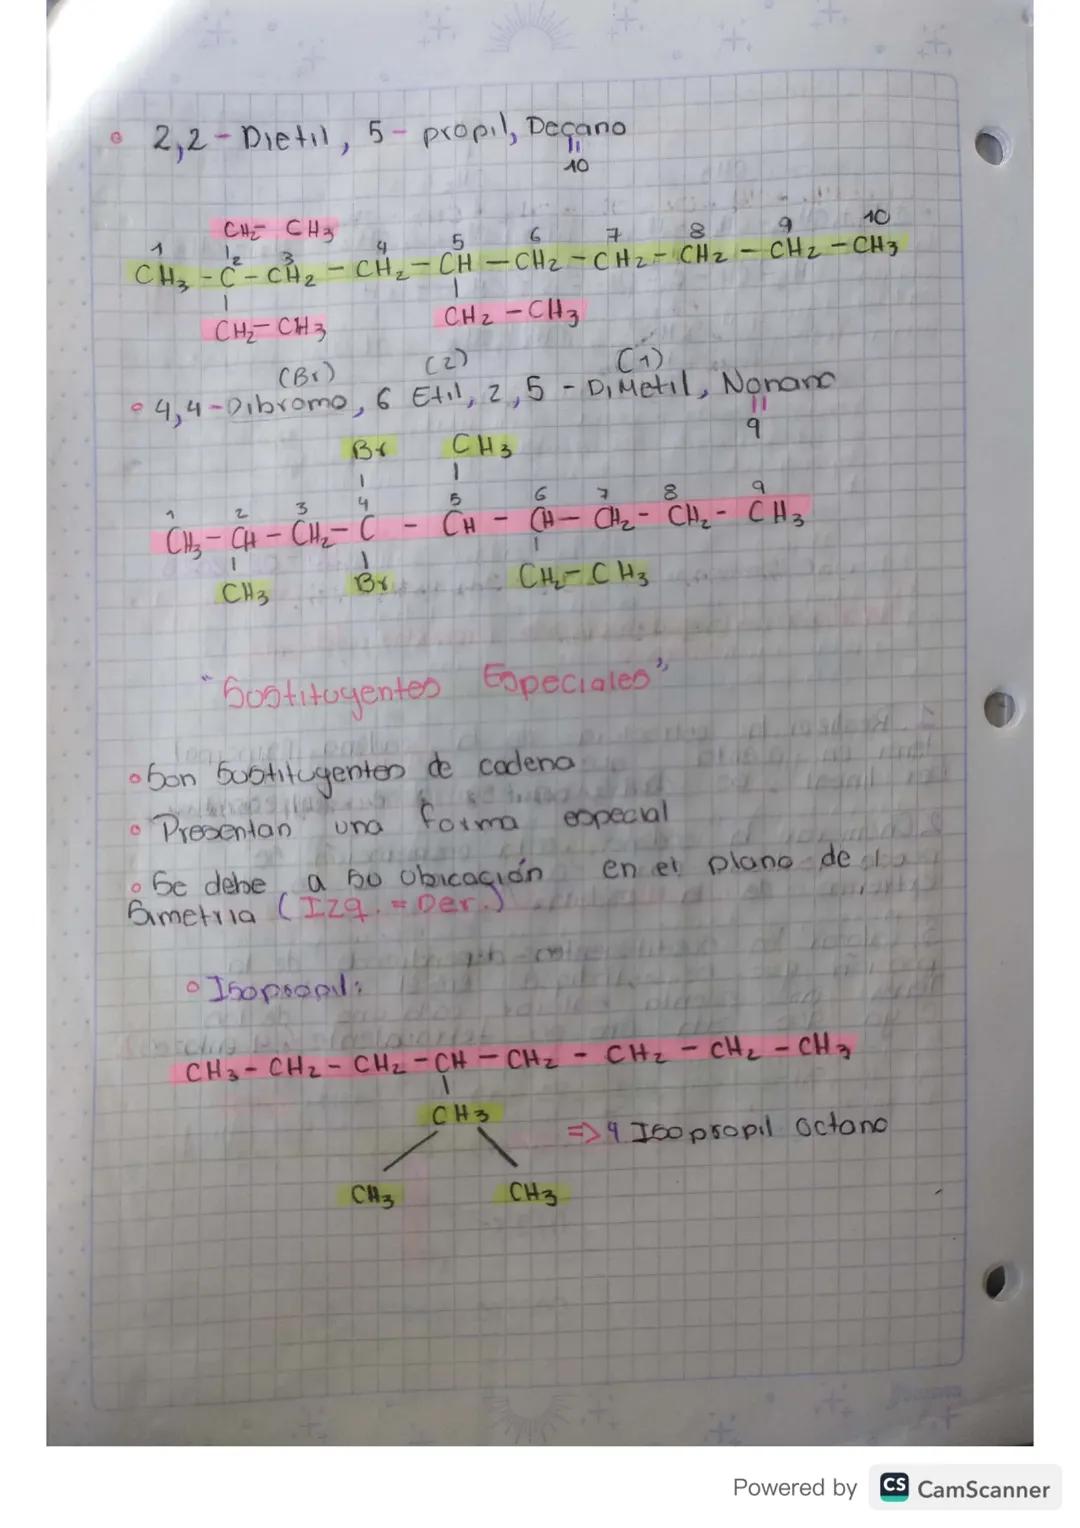 2,2-Dietil, 5-propil, Decano
10
CH2-CH3
1 2 3 4 5 6 7 8 9 10
CH3-C-CH2-CH2-CH-CH2-CH2-CH2-CH2-CH3
CH2-CH3 CH2-CH3
(Br) (2) (1)
4,4-Dibromo, 6 Etil, 2,5-DiMetil, Nonano
9
Br CH3
1 2 3 4 5 6 7 8 9
CH3-CH-CH2-C-CH-CH-CH2-CH2-CH3
CH3 Br CH2-CH3
"Sustituyentes Especiales"
Son Sustituyentes de cadena
Presentan una forma especial
Se debe a su ubicación en el plano de
Simetria (Izq. = Der.)
Isopropil:
CH3-CH2-CH2-CH-CH2-CH2-CH2-CH3
CH3
=> 4 Isopropil octano
CH3 CH3
Powered by CS CamScanner